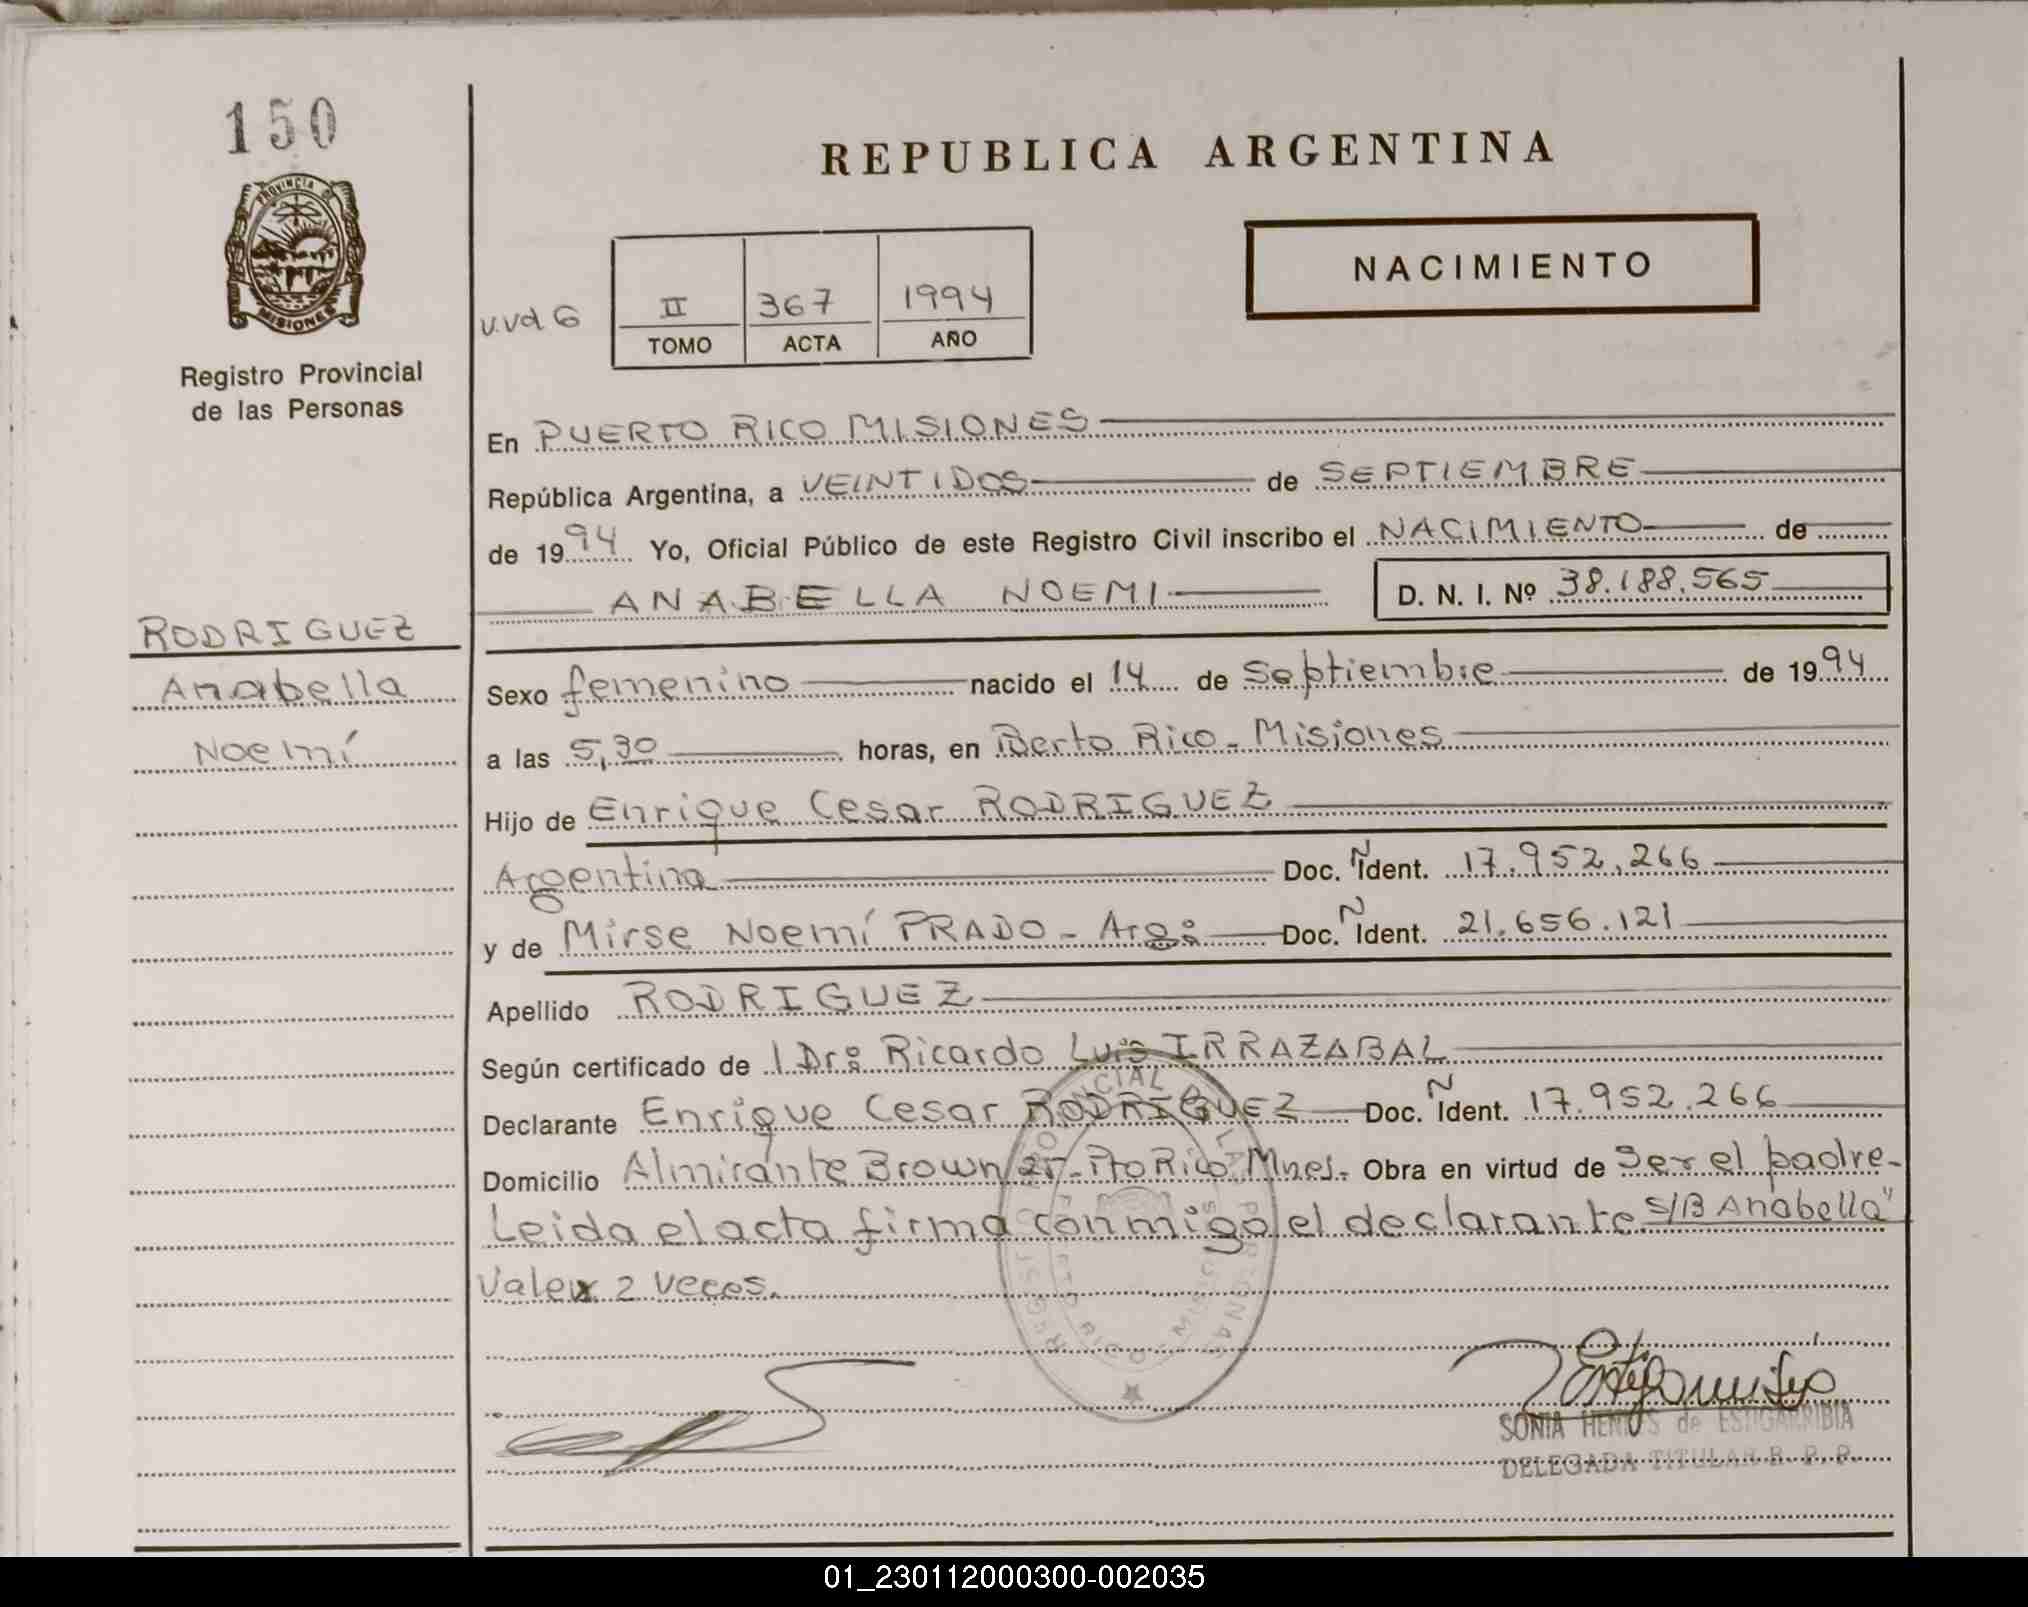 150
PROVINCIA DE
MISIONES
Registro Provincial
de las Personas
REPUBLICA ARGENTINA
NACIMIENTO
II 367 1994
TOMO ACTA AÑO
En PUERTO RICO MISIONES
República Argentina, a VEINTIDOS de SEPTIEMBRE
de 1994 Yo, Oficial Público de este Registro Civil inscribo el NACIMIENTO de
ANABELLA NOEMI D. N. I. Nº 38.188.565
RODRIGUEZ
Anabella
Noemí
Sexo femenino nacido el 14 de Septiembre de 1994
a las 5,30 horas, en Puerto Rico - Misiones
Hijo de Enrique Cesar RODRIGUEZ
Argentina Doc. Ñ Ident. 17.952.266
y de Mirse Noemí PRADO - Arg: Doc. Ñ Ident. 21.656.121
Apellido RODRIGUEZ
Según certificado de l Dr: Ricardo Luis IRRAZABAL
Declarante Enrique Cesar RODRIGUEZ Doc. Ñ Ident. 17.952.266
Domicilio Almirante Brown 25 - Pto Rico Mnes. Obra en virtud de ser el padre-
Leida el acta firma conmigo el declarante S/B Anabella"
Vale x 2 veces.
SONIA de ESTIGARRIBIA
DELEGADA TITULAR R. P. P.
01_230112000300-002035